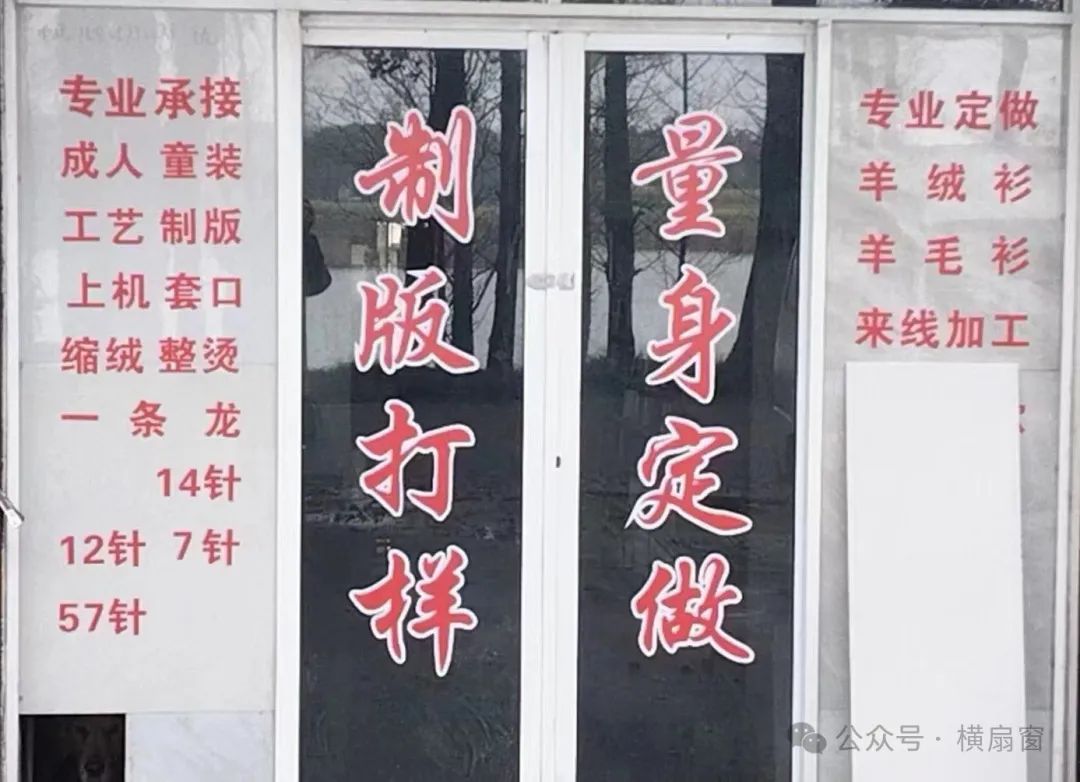 专业承接
成人童装
工艺制版
上机套口
缩绒整烫
一条龙
14针
12针 7针
57针
制版打样
量身定做
专业定做
羊绒衫
羊毛衫
来线加工
公众号·横扇窗